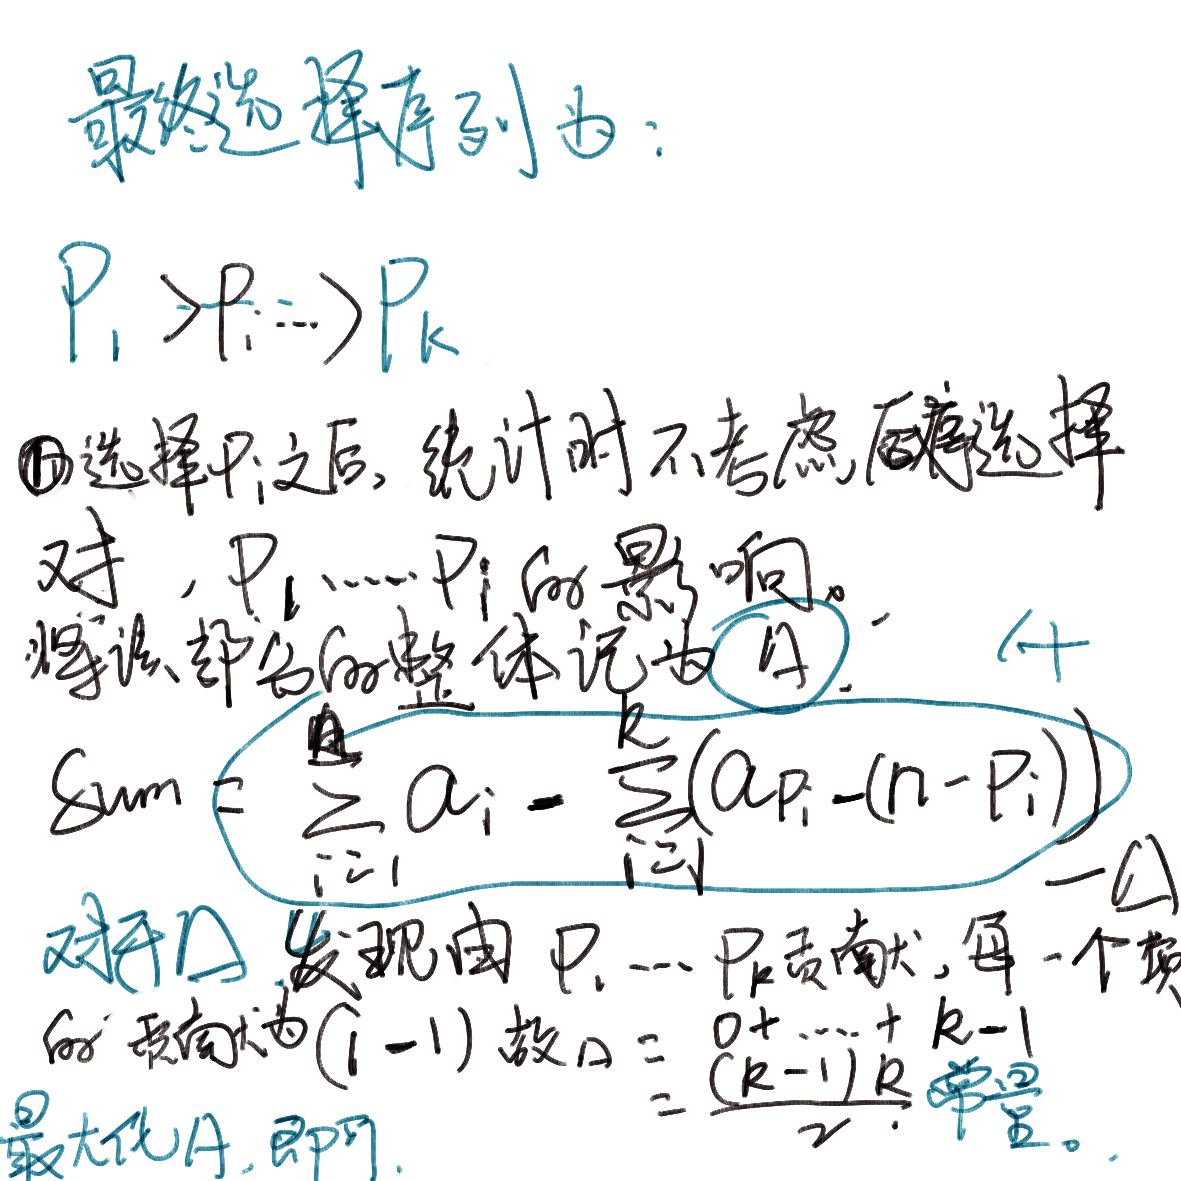 最终选择序列为:
P₁ > Pᵢ ... > Pₖ
① 选择Pᵢ之后, 统计时不考虑后序选择
对, P₁ ...... Pᵢ 的影响。
将该部分的整体记为 △.
A
Sum = ∑_{i=1}^{n} aᵢ - ∑_{i=1}^{k} (a_{Pᵢ} - (n - Pᵢ))
- △
对于△ 发现由 P₁ ... Pₖ贡献, 每一个项
的贡献为 (i-1) 故△ = 0+ ..... + k-1
= (k-1)k / 2 常量。
最大化A, 即可.